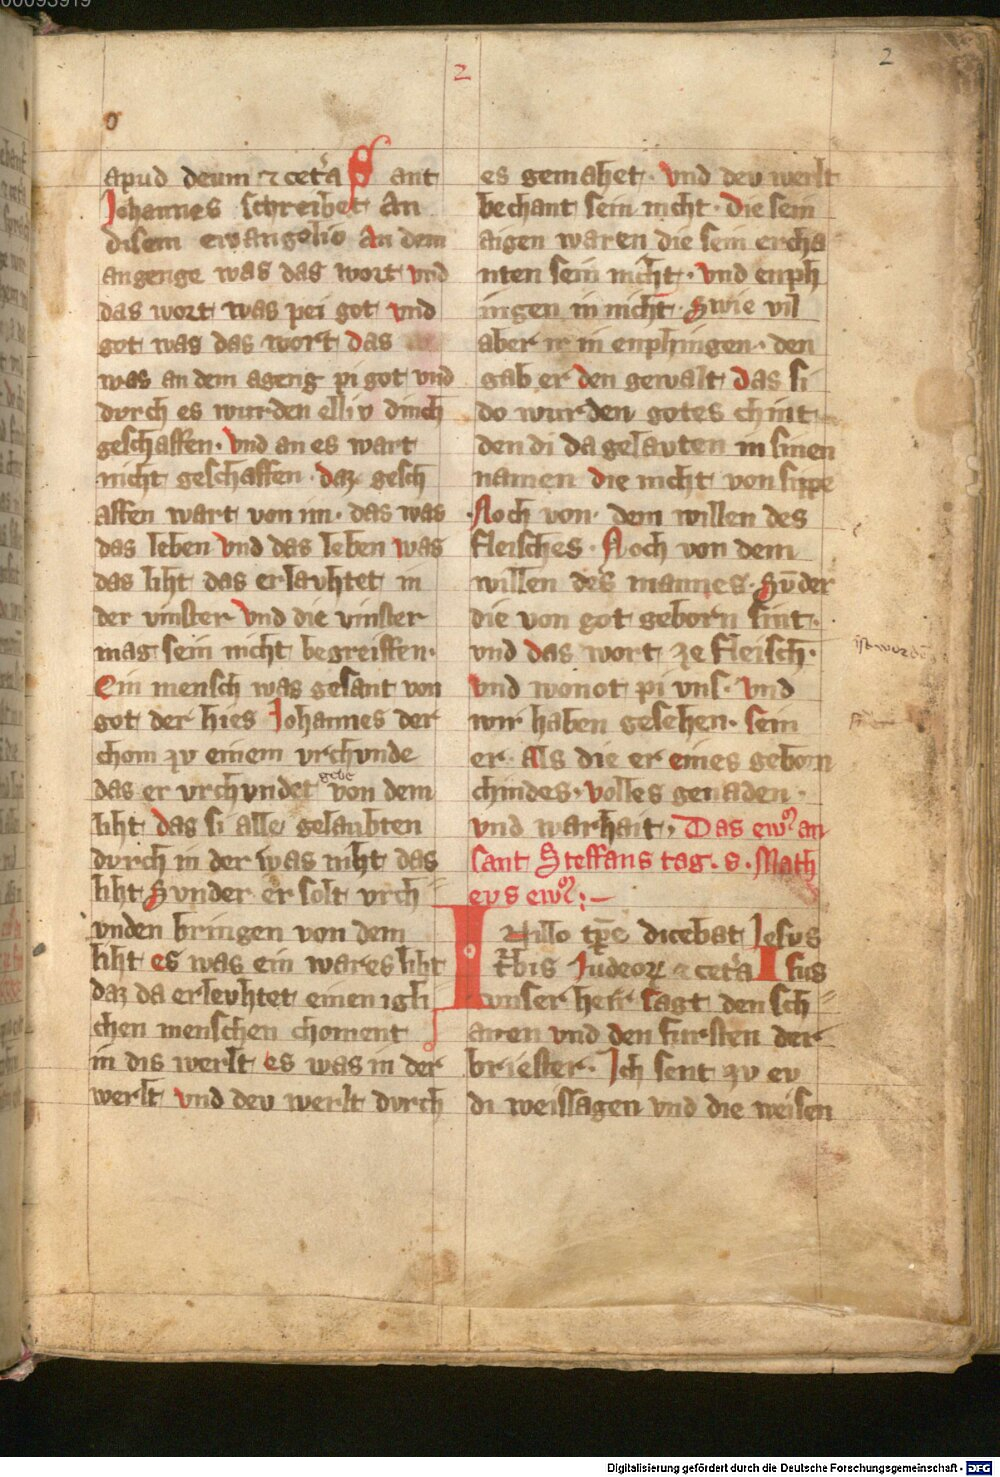 00093919
2
2
apud deum ⁊ cet͛a Sant
Johannes schreibet An
disem ewangelio An dem
angenge was das wort vnd
das wort was pei got vnd
got was das wort das
was an dem ageng pi got vnd
dvrch es wurden elliv dinch
geschaffen· vnd an es wart
nicht geschaffen· daz gesch
affen wart von im· das was
das leben vnd das leben was
das liht das erlavhtet in
der vinster vnd die vinster
mag sein nicht begreiffen·
Ein mensch was gesant von
got der hies Johannes der
chom zv einem vrchvnde
das er vrchvndet gebe von dem
liht das si alle gelaubten
dvrch in der was niht das
liht Svnder er solt vrch
vnden bringen von dem
liht es was ein wares liht
daz da erlevhtet einen igli
chen menschen choment
in dis werlt es was in der
werlt vnd dev werlt dvrch
es gemahet· vnd dev werlt
bechant sein nicht· die sein
aigen waren die sein ercha
nten sein nicht· vnd enph
ingen in nicht· Swie vil
aber ir in enphingen· den
gab er den gewalt das si
do wurden gotes chint
den di da gelavten in sinen
namen die nicht von sippe
Noch von· dem willen des
fleisches· Noch von dem
willen des mannes· Sv̄der
die von got geborn sint·
vnd das wort ze fleisch·
ist worden
vnd wonot pi vns· vnd
wir haben gesehen· sein
er· als die er eines geborn
chindes· volles genaden·
vnd warhait· Das ew͛ an
sant Steffans tag· S· Math
evs ew͛ :—
In illo tp̄e dicebat Jesvs
t͛bis Judeoꝝ ⁊ cet͛a Isus
vnser herr sagt den sch
aren vnd den fursten der
briester· Ich sent zv ev
di weissagen vnd die weisen
Digitalisierung gefördert durch die Deutsche Forschungsgemeinschaft - DFG